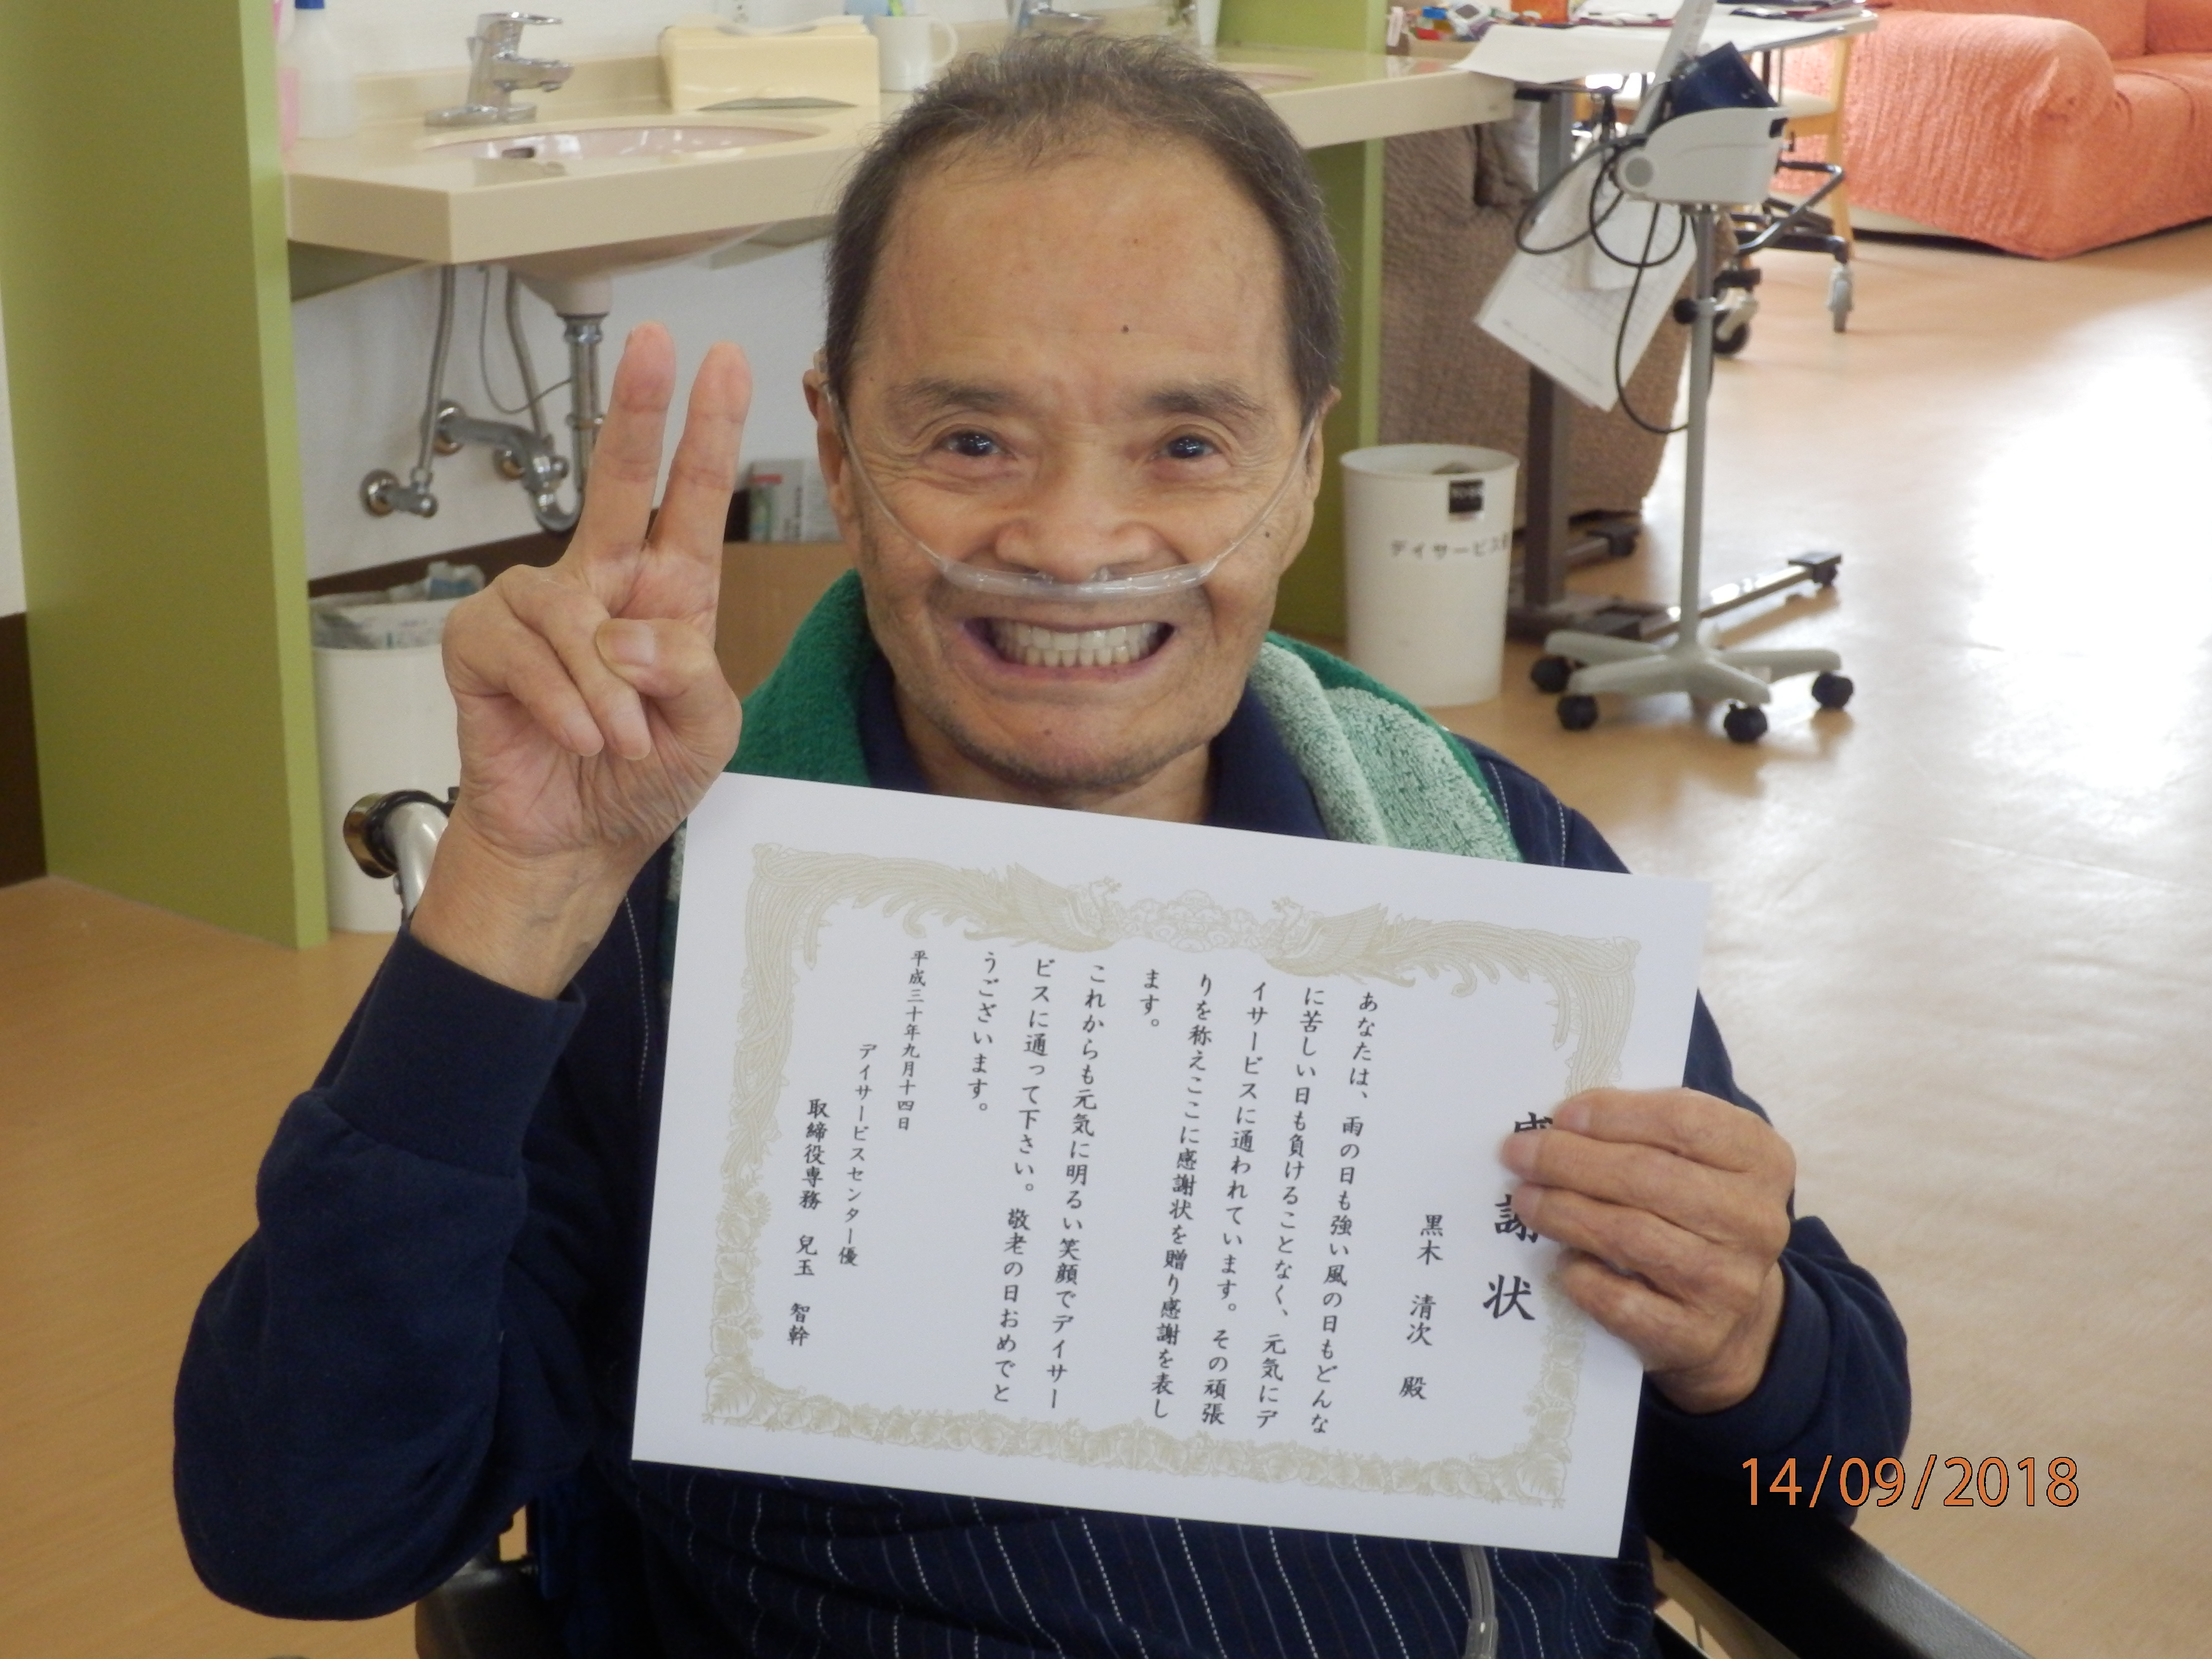 感謝状
黒木 清次 殿
あなたは、雨の日も強い風の日もどんな
に苦しい日も負けることなく、元気にデ
イサービスに通われています。その頑張
りを称えここに感謝状を贈り感謝を表し
ます。
これからも元気に明るい笑顔でデイサー
ビスに通って下さい。敬老の日おめでと
うございます。
平成三十年九月十四日
デイサービスセンター優
取締役専務 兒玉 智幹
デイサービス
14/09/2018